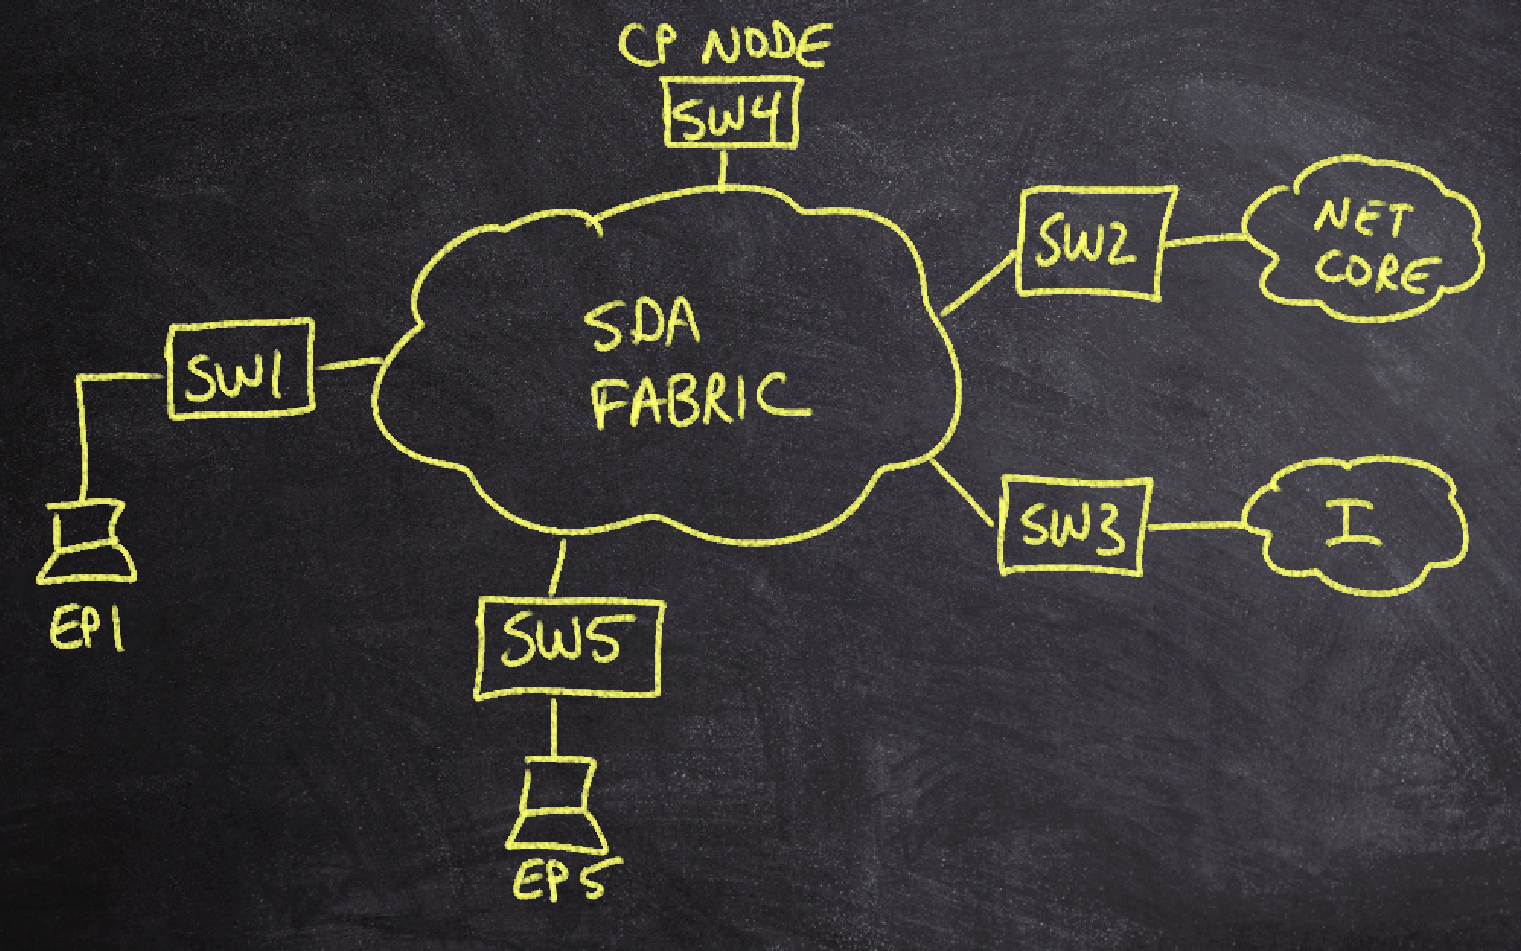 CP NODE
SW4
SW2
NET
CORE
SDA
FABRIC
SW1
SW3
I
EP1
SW5
EP5